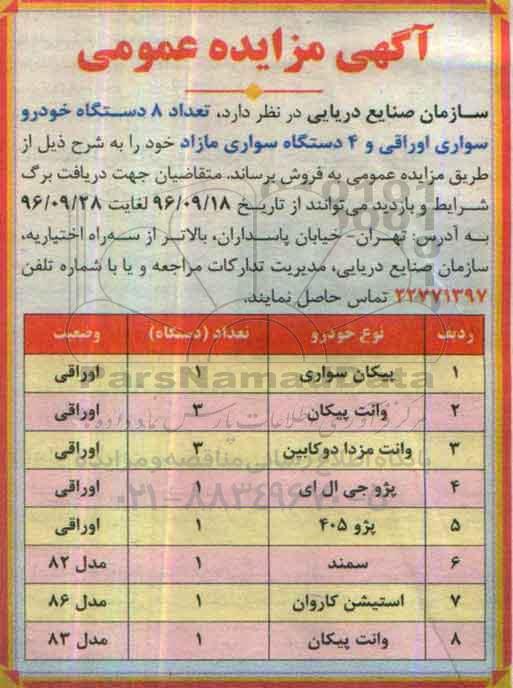 آگهی مزایده عمومی
سازمان صنایع دریایی در نظر دارد، تعداد ۸ دستگاه خودرو
سواری اوراقی و ۴ دستگاه سواری مازاد خود را به شرح ذیل از
طریق مزایده عمومی به فروش برساند. متقاضیان جهت دریافت برگ
شرایط و بازدید می‌توانند از تاریخ ۹۶/۰۹/۱۸ لغایت ۹۶/۰۹/۲۸
به آدرس: تهران- خیابان پاسداران، بالاتر از سه‌راه اختیاریه،
سازمان صنایع دریایی، مدیریت تدارکات مراجعه و یا با شماره تلفن
۲۲۷۷۱۳۹۷ تماس حاصل نمایند.
ردیف نوع خودرو تعداد (دستگاه) وضعیت
۱ پیکان سواری ۱ اوراقی
۲ وانت پیکان ۳ اوراقی
۳ وانت مزدا دوکابین ۳ اوراقی
۴ پژو جی ال ای ۱ اوراقی
۵ پژو ۴۰۵ ۱ اوراقی
۶ سمند ۱ مدل ۸۲
۷ استیشن کاروان ۱ مدل ۸۶
۸ وانت پیکان ۱ مدل ۸۳
ParsNamadData